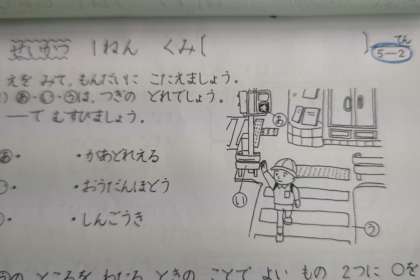 せいかつ 1ねん くみ〔 〕
てん
5-2
えを みて、もんだいに こたえましょう。
) あ・い・うは、つぎの どれでしょう。
——で むすびましょう。
あ・ ・かあどれえる
・ ・おうだんほどう
・ ・しんごうき
あ
い
う
のところを わたる ときの ことで よい もの 2つに ○を